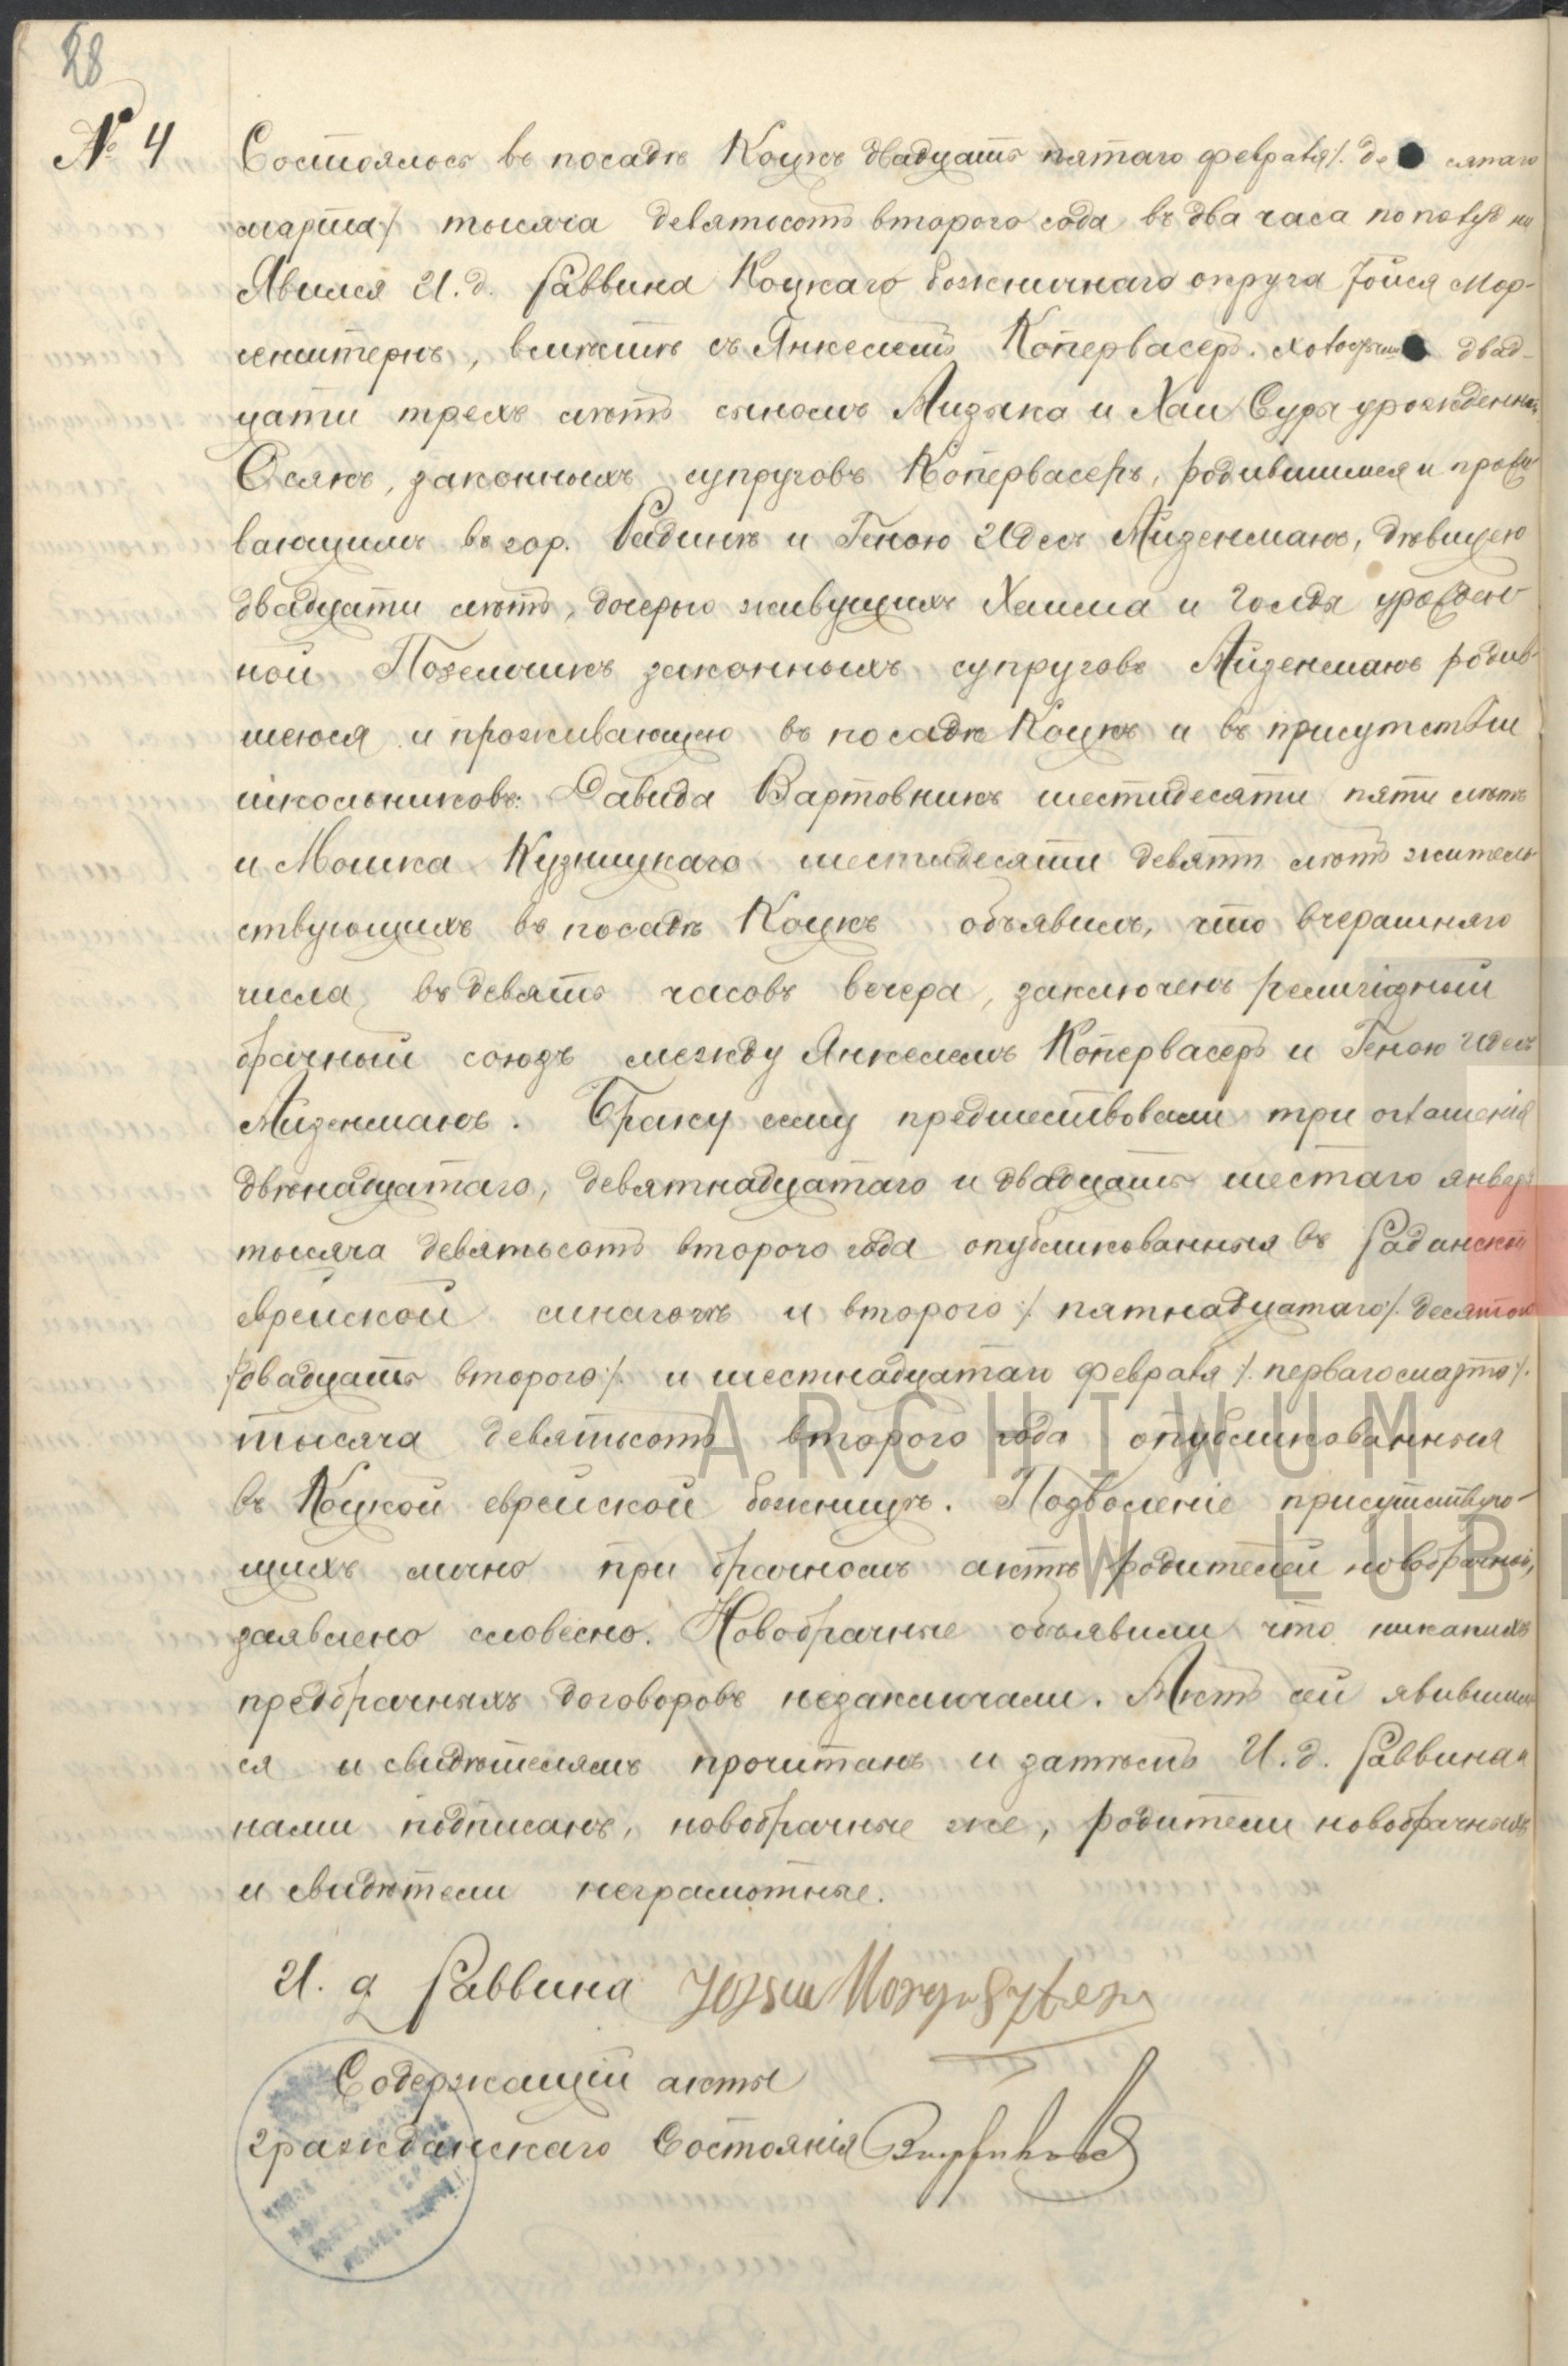 28
№ 4
Состоялось въ посадѣ Коцкъ двадцать пятаго февраля /. десятаго
марта ./ тысяча девятьсотъ второго года въ два часа пополудни
Явился И. д. Раввина Коцкаго божничнаго округа Іойся Мор-
генштернъ, вмѣстѣ съ Янкелемъ Копервасеръ. холостымъ двад-
цати трехъ лѣтъ сыномъ Айзыка и Хаи Суры урожденной
Осякъ, законныхъ супруговъ Копервасеръ, родившимся и прожи-
вающимъ въ гор. Радинѣ и Геною Идесъ Айзенманъ, дѣвицею
двадцати лѣтъ, дочерью живущихъ Хаима и Голды урожден-
ной законныхъ супруговъ Айзенманъ родив-
шеюся и проживающею въ посадѣ Коцкъ и въ присутствіи
школьниковъ: Давида Вартовникъ шестидесяти пяти лѣтъ
и Мошка Кузницкаго шестидесяти девяти лѣтъ житель-
ствующихъ въ посадѣ Коцкъ объявилъ, что вчерашняго
числа, въ девять часовъ вечера, заключенъ религіозный
брачный союзъ между Янкелемъ Копервасеръ и Геною Идесъ
Айзенманъ. Браку сему предшествовали три оглашенія
двѣнадцатаго, девятнадцатаго и двадцать шестаго января
тысяча девятьсотъ второго года опубликованныя въ Радинской
еврейской синагогѣ и второго /. пятнадцатаго /. десятаго
/двадцать второго /. и шестнадцатаго февраля /. перваго марта /.
тысяча девятьсотъ второго года опубликованныя
въ Коцкой еврейской божницѣ. Позволеніе присутствую-
щихъ лично при брачномъ актѣ родителей новобрачной,
заявлено словесно. Новобрачные объявили что никакихъ
предбрачныхъ договоровъ незаключали. Актъ сей явившим-
ся и свидѣтелямъ прочитанъ и затѣмъ И. д. Раввина и
нами подписанъ, новобрачные же, родители новобрачныхъ
и свидѣтели неграмотные.
И. д Раввина
Содержащій акты
гражданскаго Состоянія
ARCHIWUM
W LUB